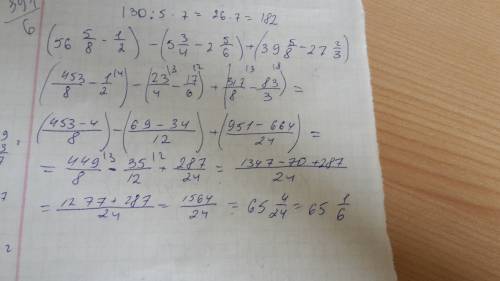 391/6
130 : 5 · 7 = 26 · 7 = 182
(56 5/8 - 1/2) - (5 3/4 - 2 5/6) + (39 5/8 - 27 2/3)
(453/8 - 1/2 ^(4) - (23/4 ^(3) - 17/6 ^(2) + (317/8 ^(3) - 83/3 ^(8) ) =
(453-4/8) - (69-34/12) + (951-664/24) =
= 449/8 ^(3) - 35/12 ^(2) + 287/24 = 1347-70+287/24
= 1277+287/24 = 1564/24 = 65 4/24 = 65 1/6